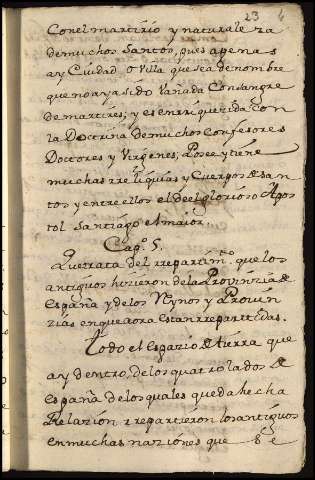 23
Con el martirio y naturaleza
de muchos Santos, pues apenas
ay Ciudad o Villa que sea de nombre
que no aya sido vañada Con sangre
de martires, y es enrriquezida con
la Doctrina de muchos Confesores
Doctores y Virgenes, Posee y tiene
muchas rreliquias y Cuerpos de san
tos y entre ellos el de el glorioso Apos
tol Santiago el maior.
Cap.º 5.
Que trata del rrepartim.to que los
antiguos hizieron de la Provinzia de
España y de los Rynos y Provin
zias en que aora estan rrepartidas.
Todo el espazio de tierra que
ay dentro, de los quatro lados de
España de los quales queda hecha
Relazion rrepartieron los antiguos
en muchas naziones que se